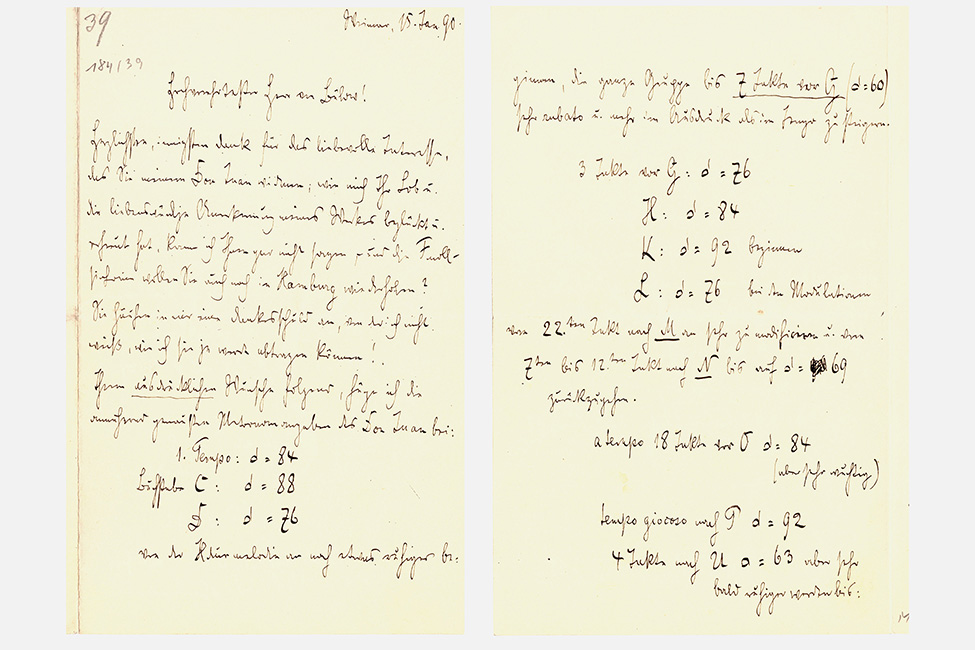 39
Weimar, 15. Jan. 90.
184/39
Hochverehrtester Herr von Bülow!
Herzlichsten, innigsten Dank für das liebevolle Interesse,
das Sie meinem Don Juan widmen; wie mich Ihr Lob u.
die liebenswürdige Anerkennung meines Werkes beglückt u.
erfreut hat, kann ich Ihnen gar nicht sagen, und die Fmoll-
sinfonie wollen Sie auch noch in Hamburg wiederholen?
Sie häufen in mir eine Dankesschuld an, von der ich nicht
weiß, wie ich sie je werde abtragen können!
Ihrem ausdrücklichen Wunsche folgend, füge ich die
genauesten Metronomangaben des Don Juan bei:
1. Tempo: d = 84
Buchstabe C: d = 88
D: d = 76
von der Hdurmelodie an noch etwas ruhiger be-
ginnen, die ganze Gruppe bis 7 Takte vor G (d = 60)
sehr rubato u. mehr im Ausdruck als im Tempo zu steigern.
3 Takte vor G: d = 76
H: d = 84
K: d = 92 beginnen
L: d = 76 bei den Modulationen
vom 22.ten Takt nach M an sehr zu modificiren u. vom
7ten bis 12.ten Takt nach N bis auf d = 69
zurückzugehen.
a tempo 18 Takte vor O d = 84
(aber sehr wuchtig)
tempo giocoso nach P d = 92
4 Takte nach U o = 63 aber sehr
bald ruhiger werden bis: